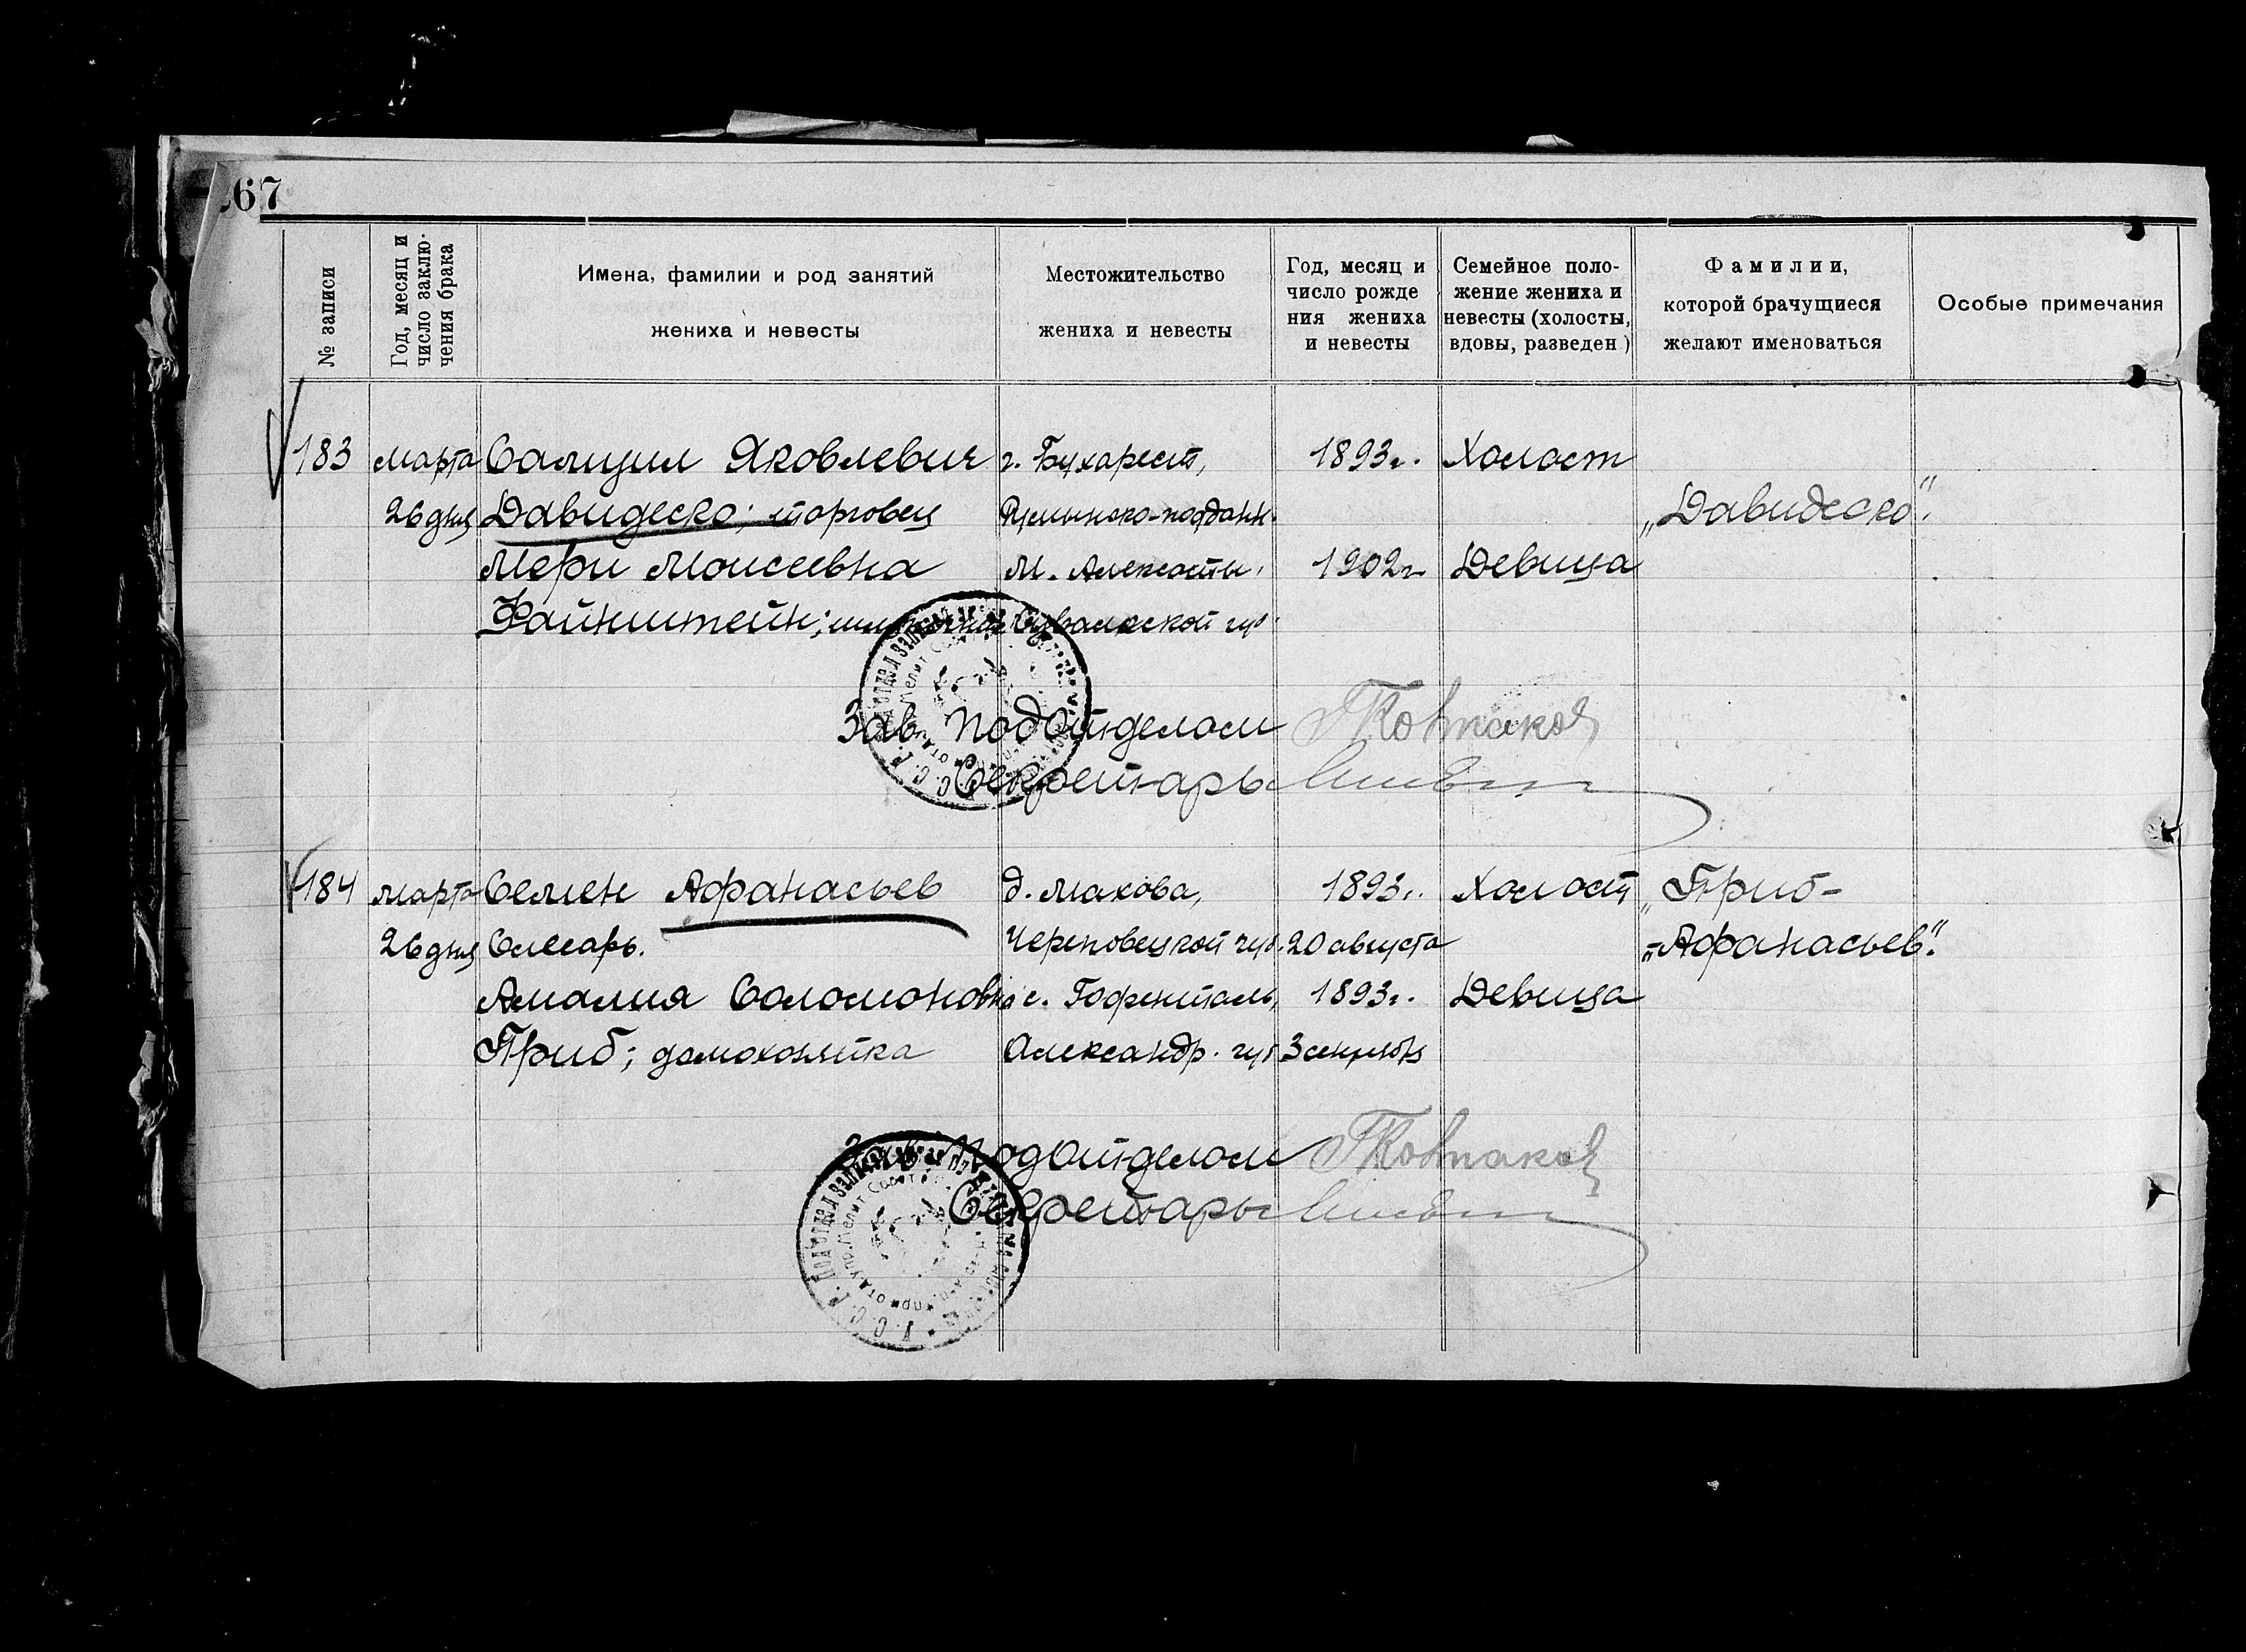 67
№ записи
Год, месяц и
число заклю-
чения брака
Имена, фамилии и род занятий
жениха и невесты
Местожительство
жениха и невесты
Год, месяц и
число рожде
ния жениха
и невесты
Семейное поло-
жение жениха и
невесты (холосты,
вдовы, разведен)
Фамилии,
которой брачущиеся
желают именоваться
Особые примечания
183 марта Самуил Яковлевич г. Бухарест, 1893 г. Холост
26 дня Давидеско; торговец Румынско-поддан. „Давидеско".
Мери Моисеевна м. Алексоты, 1902 г. Девица
Файнштейн; Сувалкской губ.
Зав. Подотделом
Секретарь
184 марта Семен Афанасьев д. Махова, 1893 г. Холост „Приб-
26 дня Слесарь. Череповецкой губ. 20 августа -Афанасьев".
Амалия Соломоновна с. Гофенталь, 1893 г. Девица
Приб; домохозяйка Александр. губ. 3 сентября
Зав. Подотделом
Секретарь